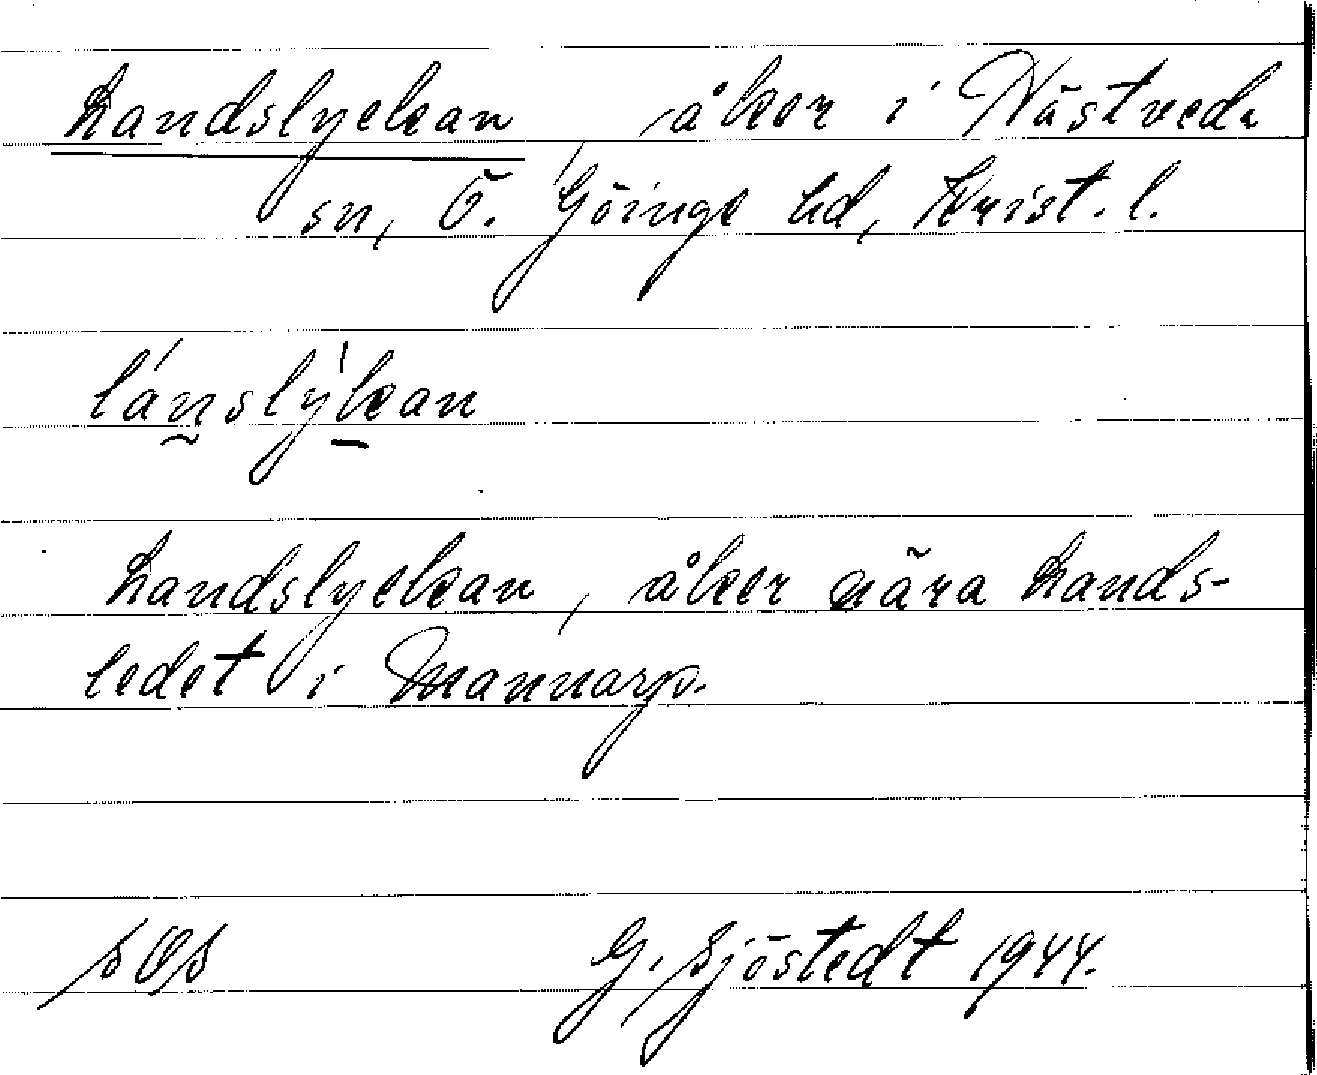 Landslyckan, åker i Nästveds
sn, Ö. Göinge hd, Krist. l.
lánslýkan
Landslyckan, åker nära Lands-
ledet i Mannarp.
SOS G. Sjöstedt 1944.